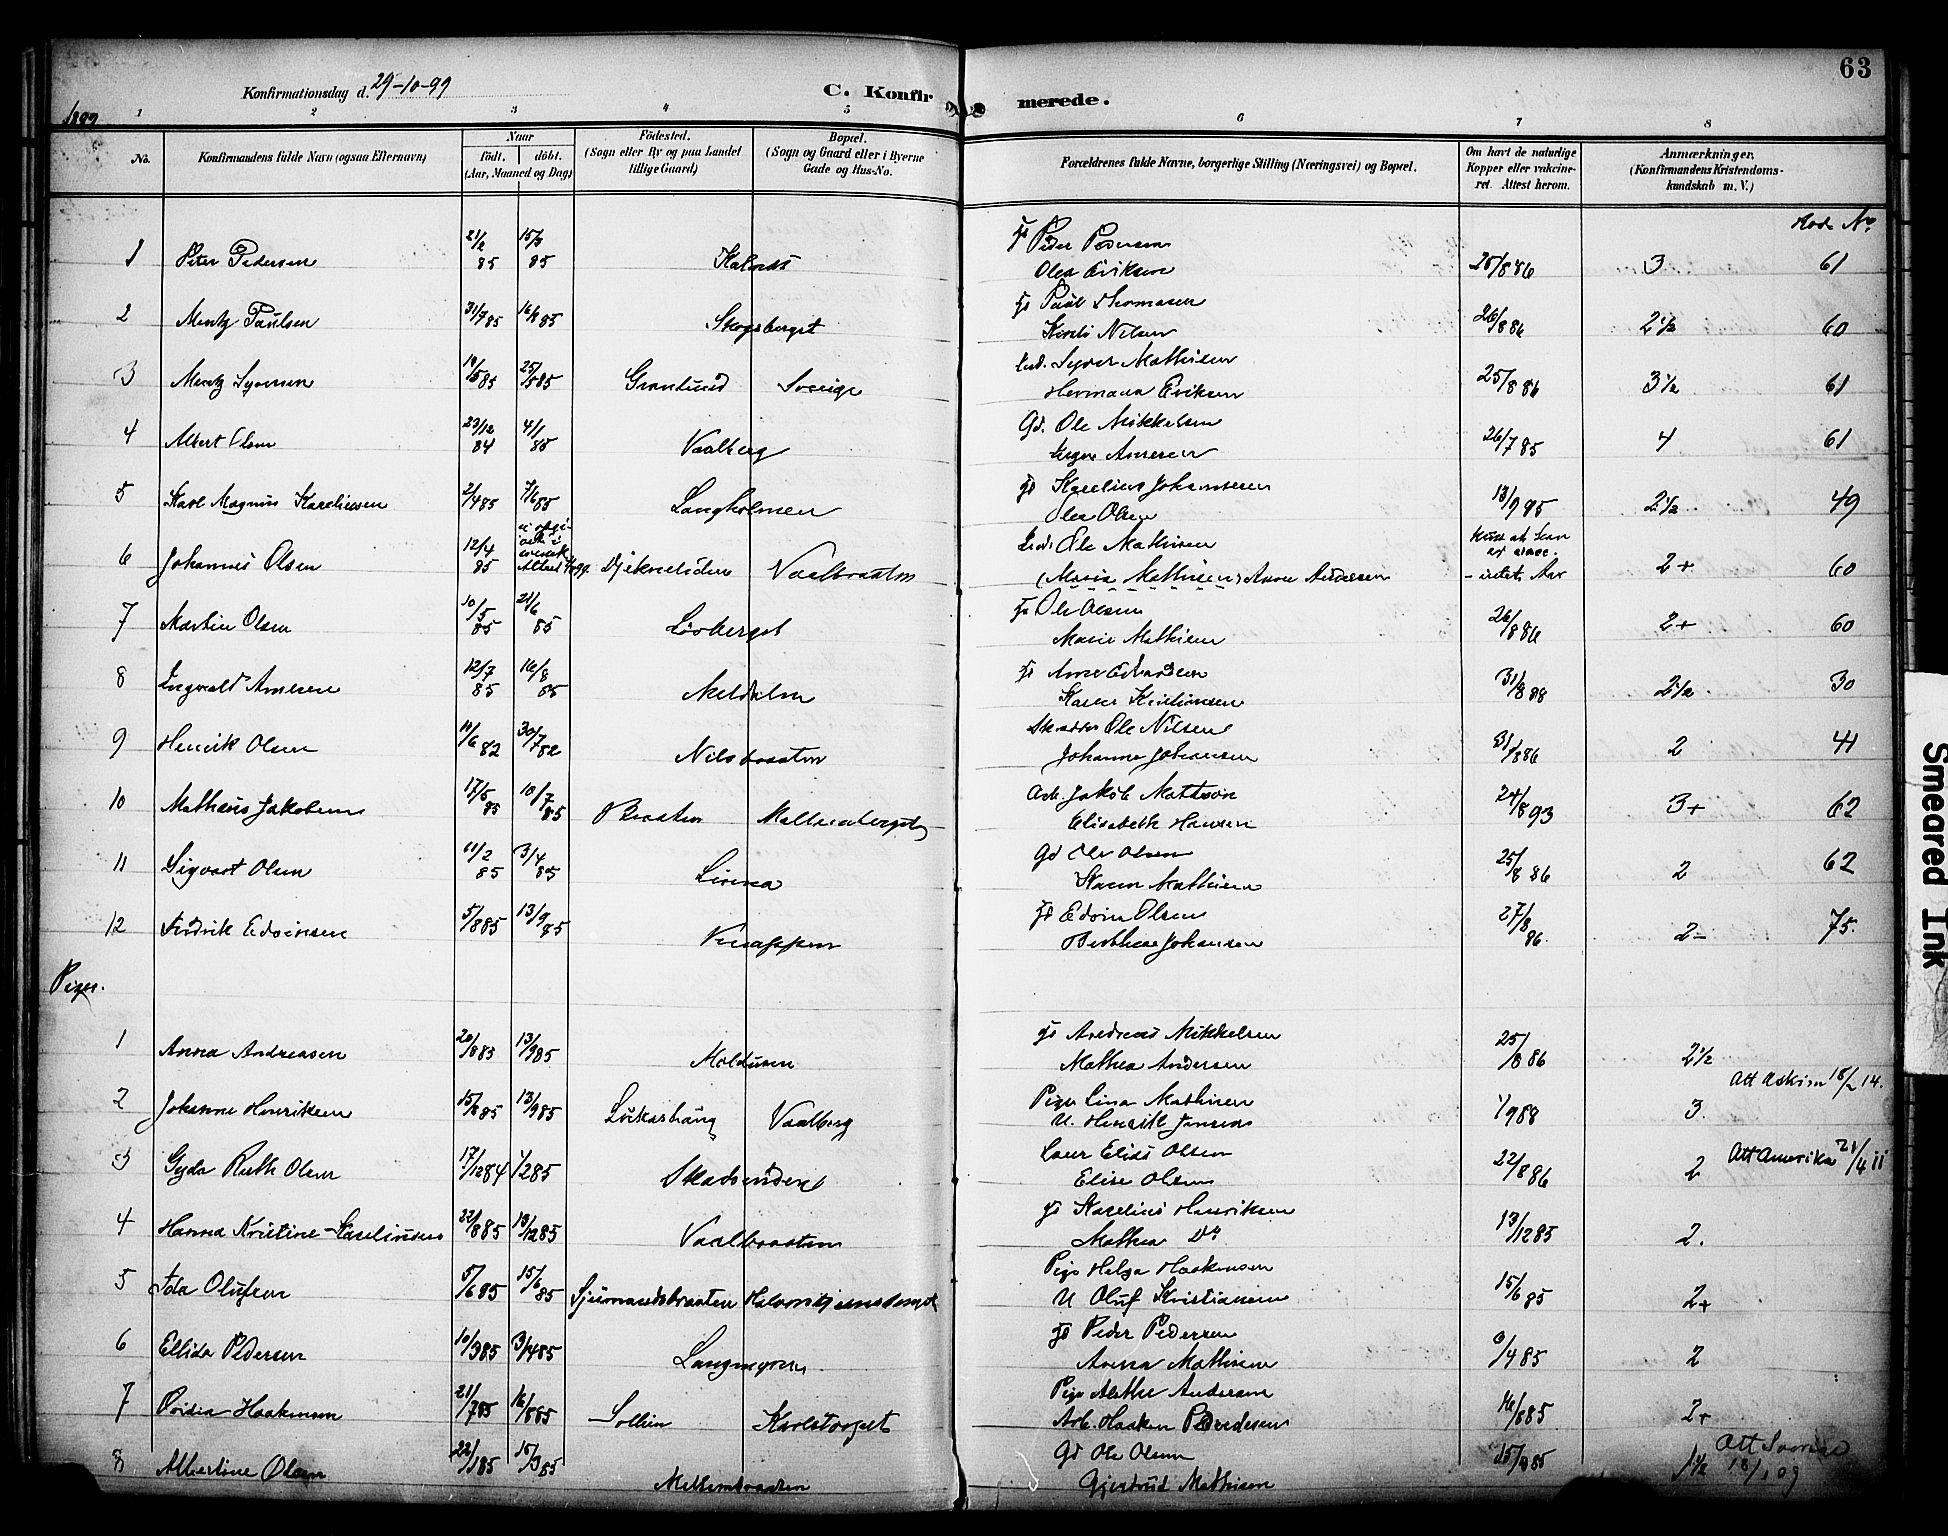 63
Konfirmationsdag d. 29-10-99
C. Konfirmerede.
1899
1 2 3 4 5 6 7 8
No.
Konfirmandens fulde Navn (ogsaa Efternavn)
Naar
födt. döbt.
(Aar, Maaned og Dag)
Födested.
(Sogn eller By og paa Landet
tillige Gaard)
Bopæl.
(Sogn og Gaard eller i Byerne
Gade og Hus-No.
Forældrenes fulde Navne, borgerlige Stilling (Næringsvei) og Bopæl.
Om havt de naturlige
Kopper eller vakcine-
ret. Attest herom.
Anmærkninger,
(Konfirmandens Kristendoms-
kundskab m. V.)
1 Peter Pedersen 21/2 85 85 Peder Pedersen
Olea Eriksen 25/8 86 3 61
2 Mentz Paulsen 85 85 Skogsberget
Nilsen 26/8 86 2 1/2 60
3 Mentz Syversen 85 25/5 85 Granlund Sverige Syver Mathisen
Hermana Eriksen 25/8 86 3 1/2 61
4 Albert Olsen 29/12 84 4/1 85 Vaalberg Gd. Ole Mikkelsen
26/7 85 4 61
5 Karl Magnus Kareliussen 2/4 85 7/6 85 Langholmen Karelius Johannesen
Olea Olsen 13/9 95 2 1/2 49
6 Johannes Olsen 12/4 85 Vaalbraaten Ole Mathisen
(Maria Mathisen) Anne Andersen 2+ 60
7 Martin Olsen 10/5 85 21/6 85 Lövberget Ole Olsen
Marie Mathisen 26/8 86 2+ 60
8 Ingvald Arnesen 12/7 85 16/8 85
Karen Kristiansen 31/8 88 2 1/2 30
9 Henrik Olsen 82 30/7 82 Nilsbraaten Ole Nilsen
Johanne Johansen 31/8 86 2 41
10 Matheus Jakobsen 85 10/7 85 Braaten Jakob Mattson
Elisabeth Hansen 24/8 93 3+ 62
11 Sigvart Olsen 11/2 85 3/4 85 Linna Gd Ole Olsen
Karen Mathisen 25/8 86 2 62
12 Fredrik Edvinsen 5/8 85 13/9 85 Knappen Edvin Olsen
Berthea Johansen 27/8 86. 2- 75.
Piger.
1 Anna Andreasen 20/8 85 13/9 85 Moldusen Andreas Mikkelsen
Mathea Andersen 25/8 86 2 1/2
2 Johanne Henriksen 85 13/9 85 Vaalberg Pige Lina Mathisen
U. Henrik Jensen 1/9 88 3. Att Askim 18/2 14.
3 Gyda Ruth Olsen 17/12 84 1/2 85 Elias Olsen
Elise Olsen 22/8 86 2 Att Amerika 21/4 11
4 Hanna Kristine Kareliussen 22/8 85 13/12 85 Vaalbraaten Karelius Henriksen
Mathea Do 13/12 85 2.
5 Ida Olufsen 5/6 85 15/6 85 Pige Helga Haakensen
U Oluf Kristiansen 15/6 85 2+
6 Ellida Pedersen 10/3 85 3/4 85 Langmyren Peder Pedersen
Anna Mathisen 4 85 2
7 Ovidia Haakensen 21/7 85 16/8 85 Sollien Karlstorpet Pige Alethe Andersen
Arb. Haaken Pedersen 16/8 85 2+
8 Albertine Olsen 22/1 85 15/3 85 Mellembraaten Gd Ole Olsen
Gjertrud Mathisen 1 1/2 Att Sverige
18/1 09
Smeared Ink